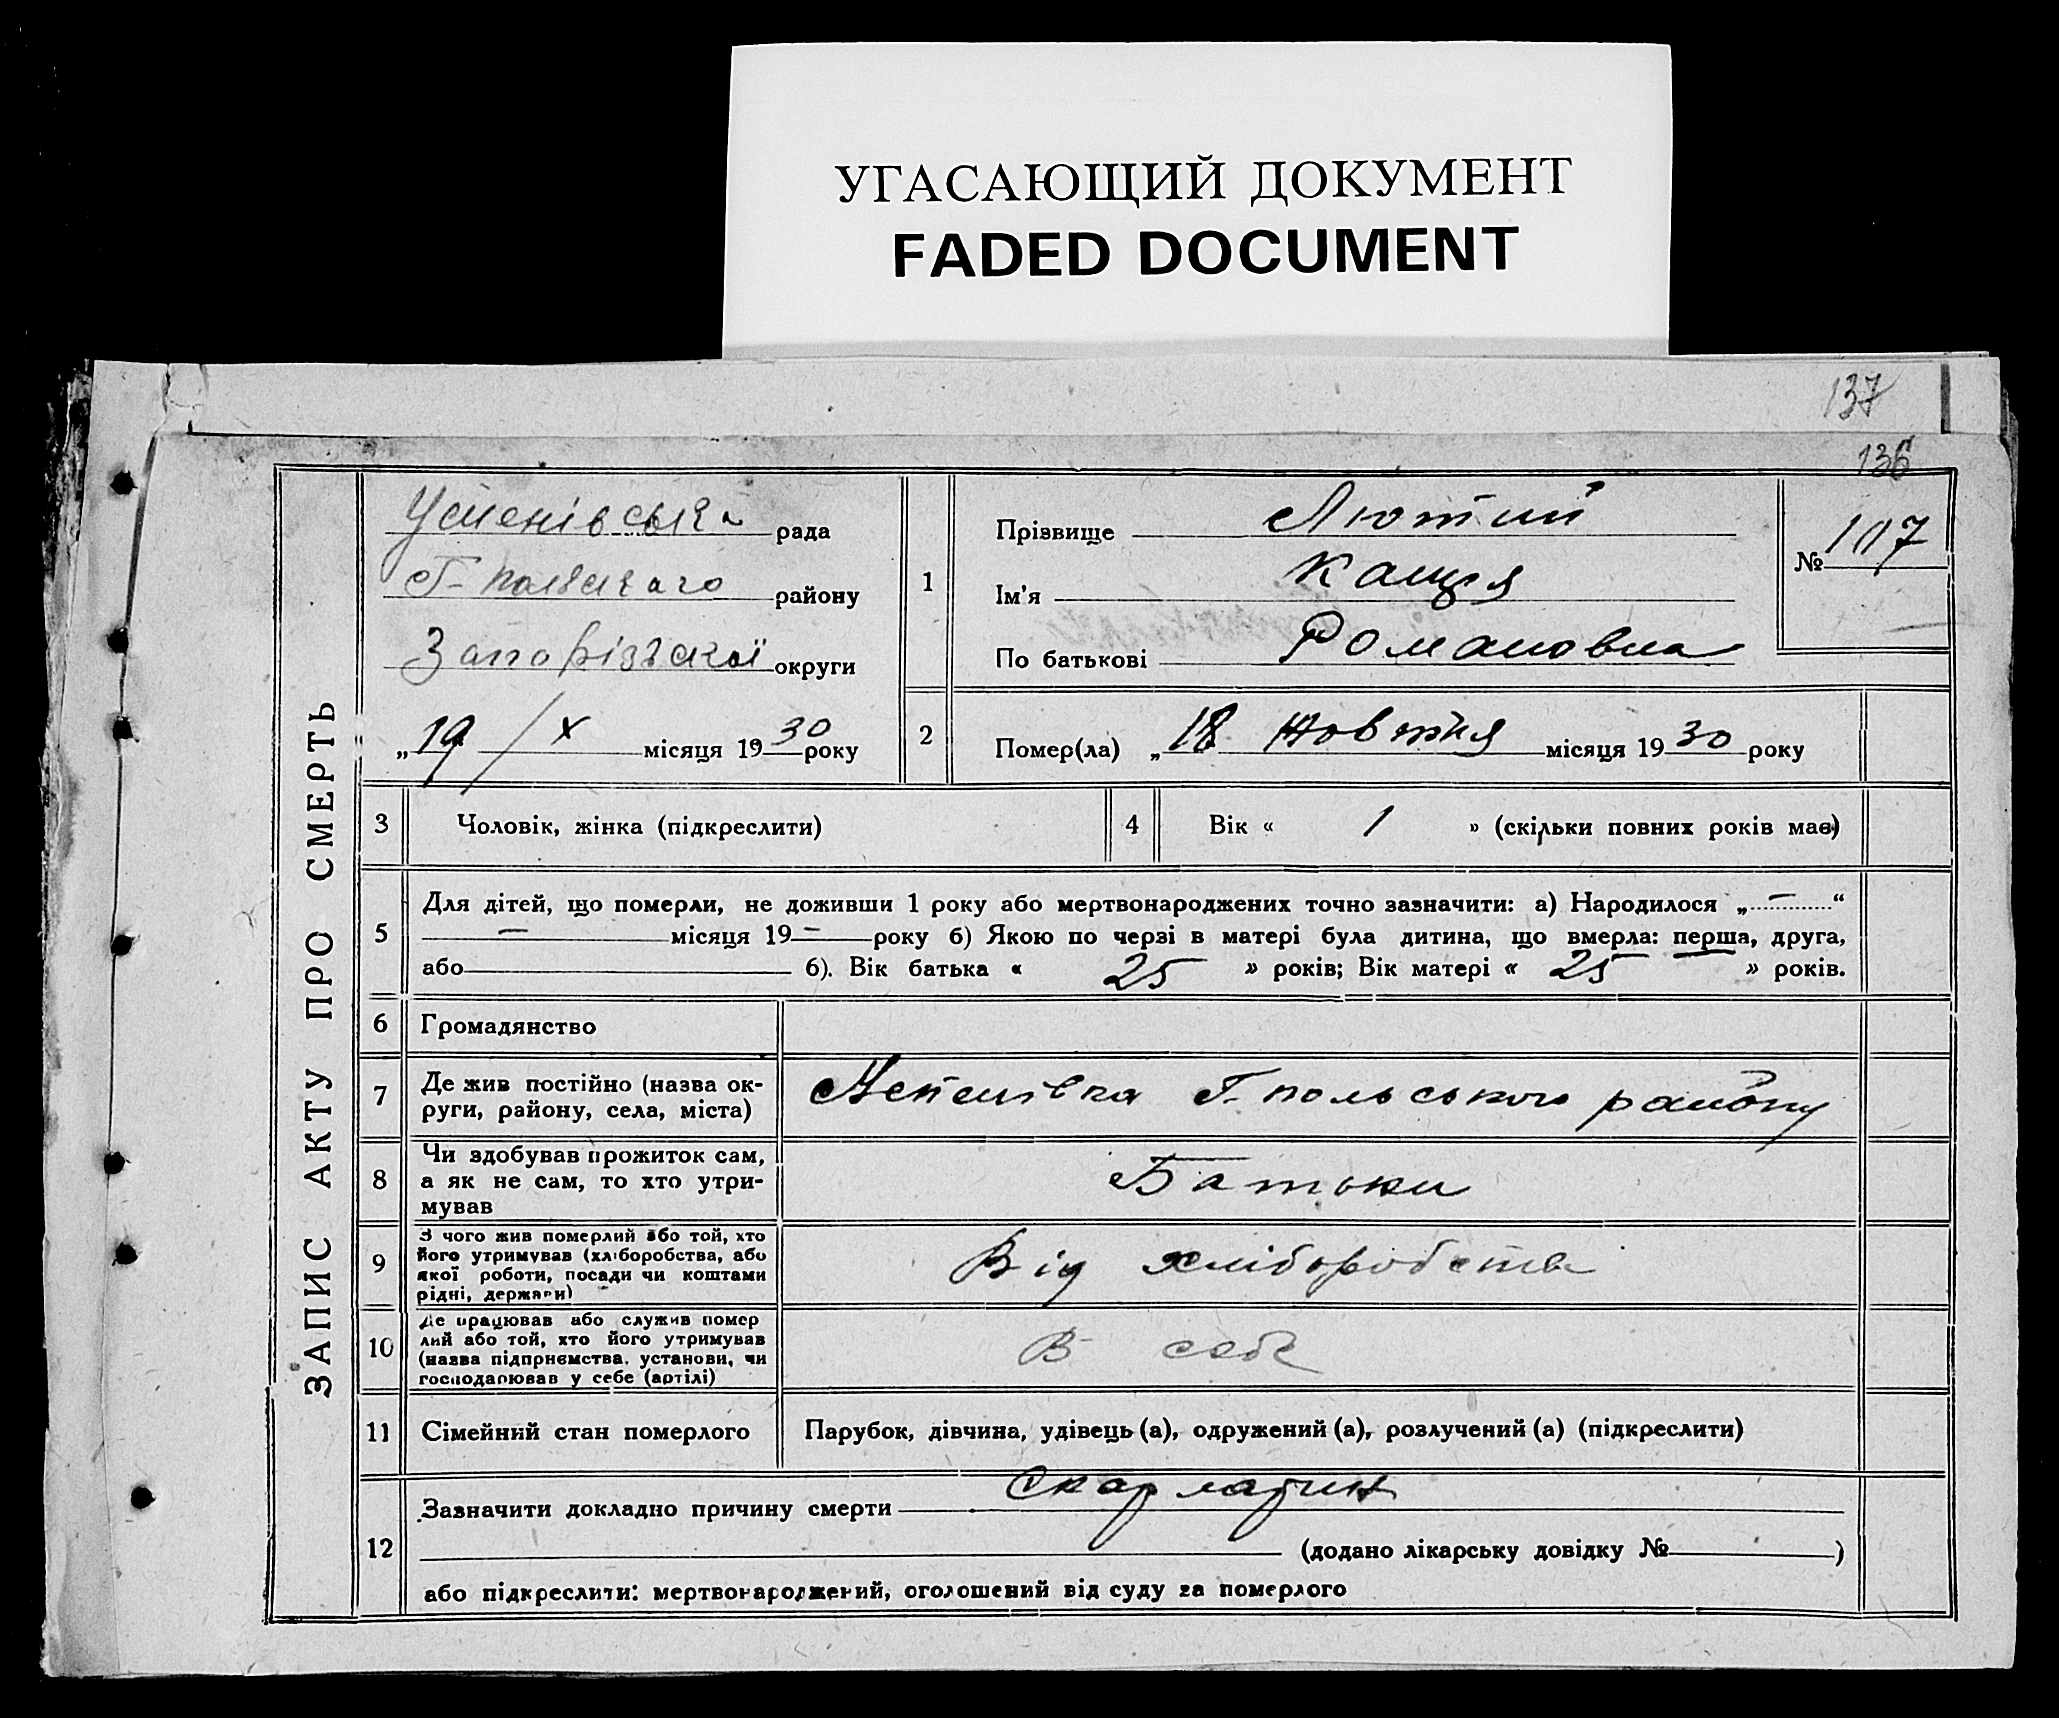 УГАСАЮЩИЙ ДОКУМЕНТ
FADED DOCUMENT
137
136
ЗАПИС АКТУ ПРО СМЕРТЬ
Успенівська рада
Г-польского району
Запорізської округи
„19 / X місяця 1930 року
1
Прізвище Лютий
Ім'я
По батькові Романовна
№ 107
2
Помер(ла) „18 жовтня місяця 1930 року
3 Чоловік, жінка (підкреслити)
4 Вік « 1 » (скільки повних років має)
5 Для дітей, що померли, не доживши 1 року або мертвонароджених точно зазначити: а) Народилося „ — “
— місяця 19 — року б) Якою по черзі в матері була дитина, що вмерла: перша, друга,
або 6). Вік батька « 25 » років; Вік матері « 25 » років.
6 Громадянство
7 Де жив постійно (назва ок-
руги, району, села, міста)
Успенівка Г-польського району
8 Чи здобував прожиток сам,
а як не сам, то хто утри-
мував
Батьки
9 З чого жив померлий або той, хто
його утримував (хліборобства, або
якої роботи, посади чи коштами
рідні, держави)
Від хліборобства
10 Де працював або служив помер
лий або той, хто його утримував
(назва підприємства, установи, чи
господарював у себе (артілі)
В себе
11 Сімейний стан померлого
Парубок, дівчина, удівець (а), одружений (а), розлучений (а) (підкреслити)
12 Зазначити докладно причину смерти Скарлатин
(додано лікарську довідку № )
або підкреслити: мертвонароджений, оголошений від суду за померлого